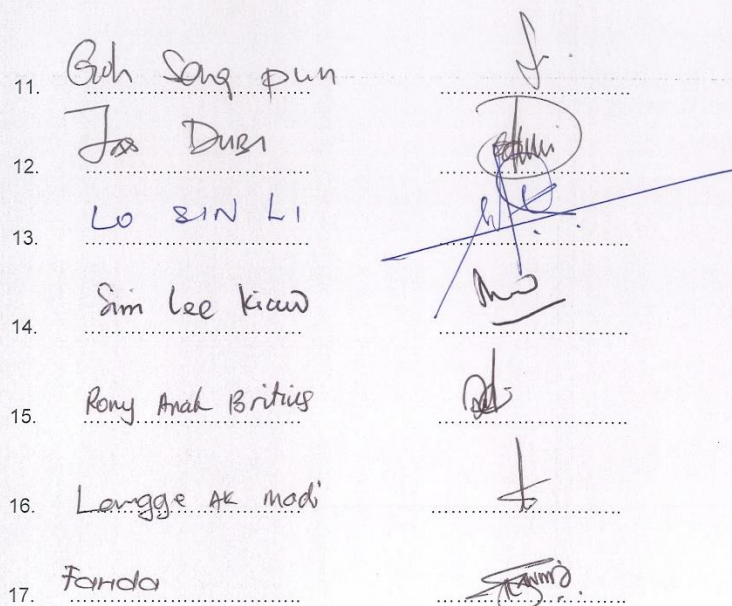 11. Goh Song pun
12. Jos Dubi
13. LO SIN LI
14. Sim Lee Kiaw
15. Rony Anak Britius
16. Langge AK madi
17. Farida